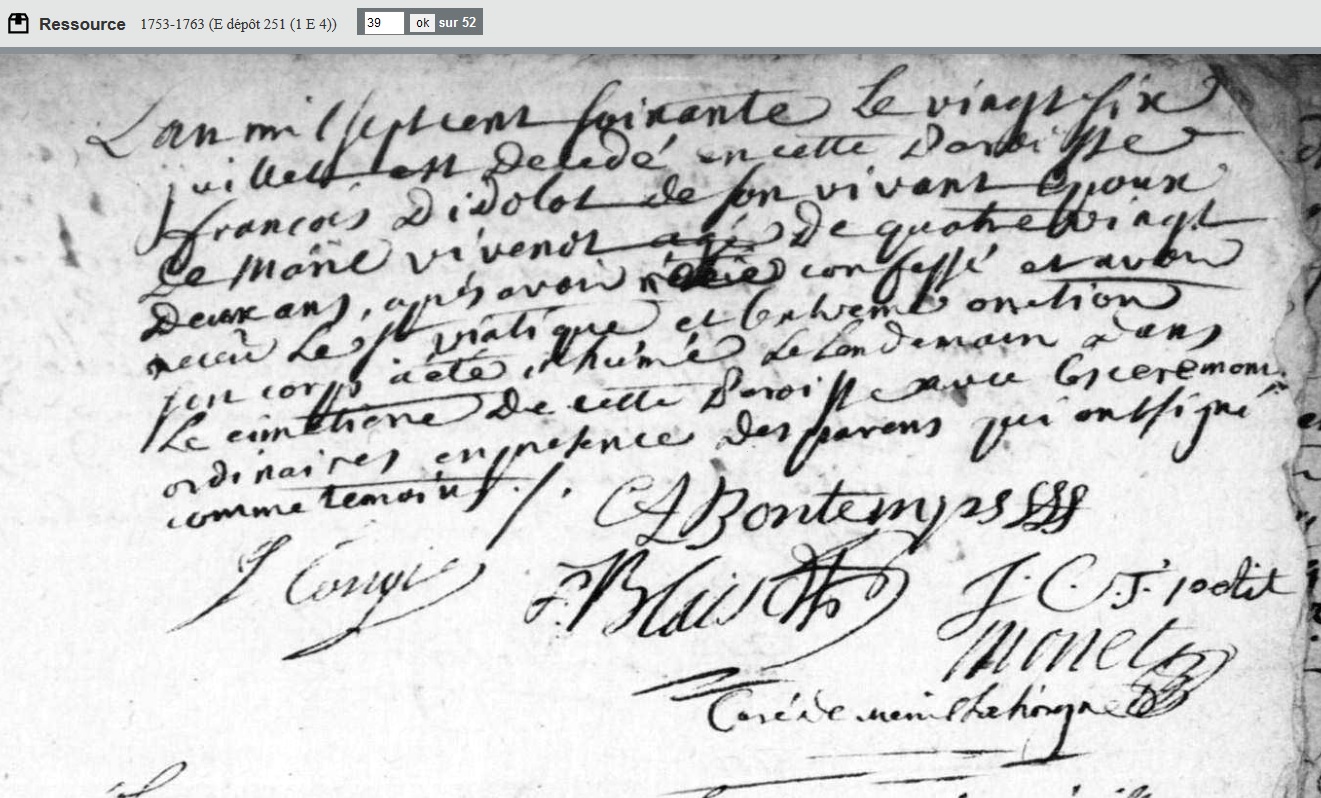 Ressource 1753-1763 (E dépôt 251 (1 E 4)) 39 ok sur 52
L'an mil sept cent soixante le vingt six
juillet est decedé en cette Paroisse
françois Didolot de son vivant epoux
de Marie vivenot agé de quatre vingt
Deux ans, après avoir confessé et avoir
receu le st viatique et l'extreme onction
son corps a été inhumé le lendemain dans
le cimetierre de cette Paroisse avec les ceremoni
ordinaires en presence des parens qui ont signé
comme temoins ./.
C A Bontemps
J
F. Blaise J. C. J. petit
Monet
Curé de menil la horgne